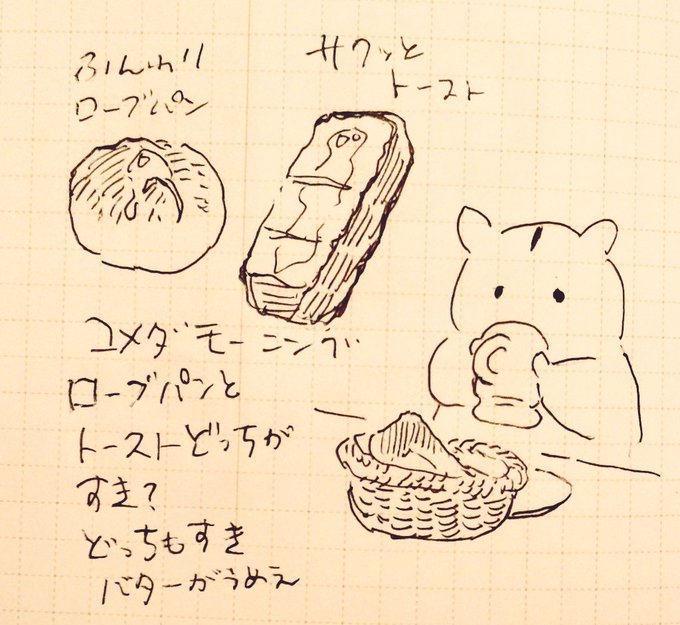 ふんわり
ローブパン
サクッと
トースト
コメダモーニング
ローブパンと
トーストどっちが
すき?
どっちもすき
バターがうめえ